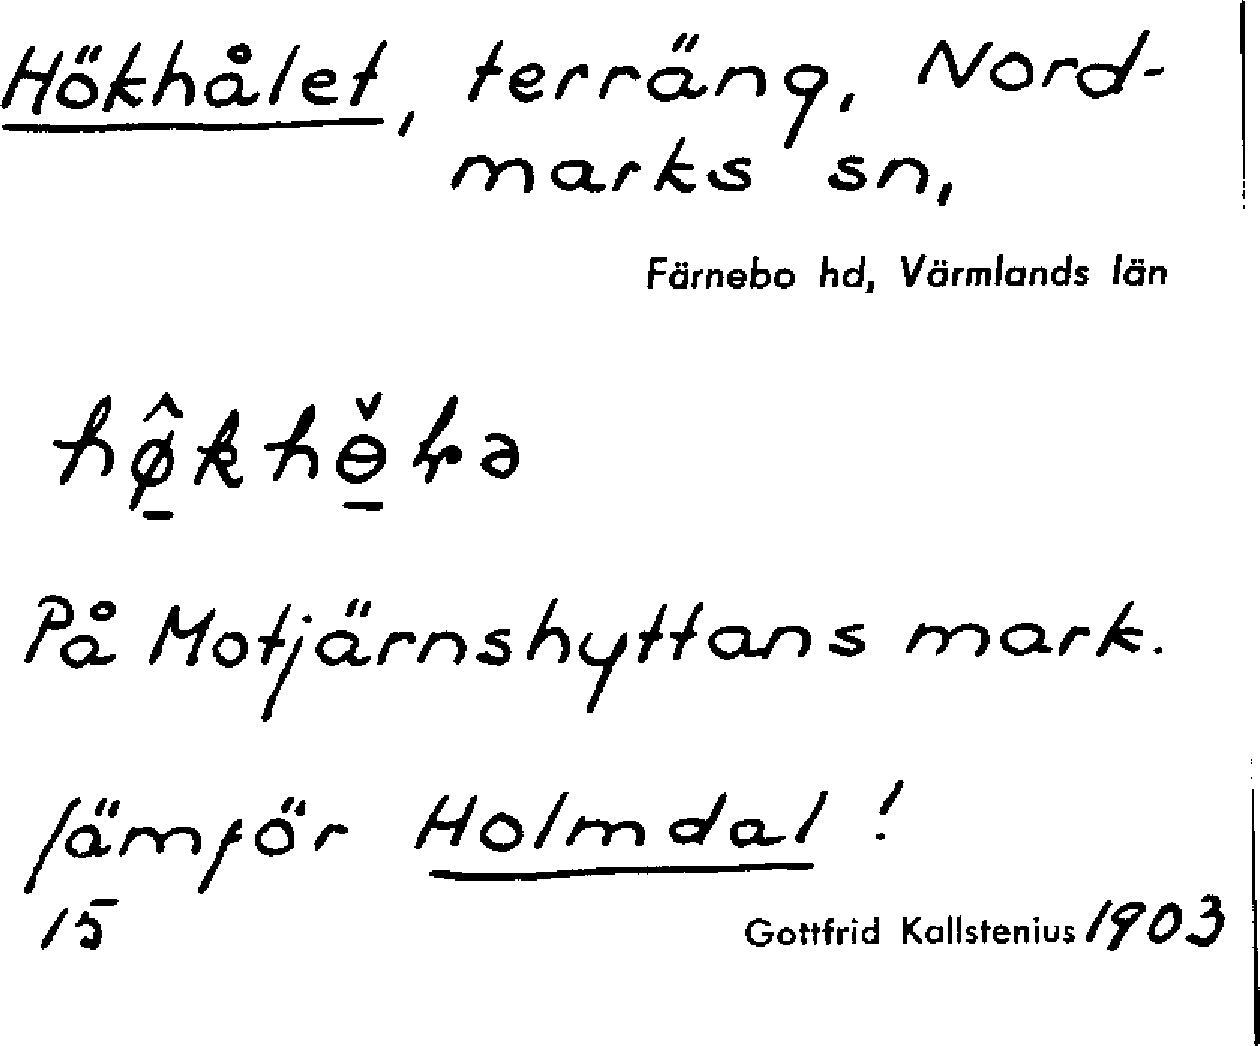 Hökhålet, terräng, Nord-
marks sn,
Färnebo hd, Värmlands län
På Motjärnshyttans mark.
Jämför Holmdal!
15
Gottfrid Kallstenius 1903